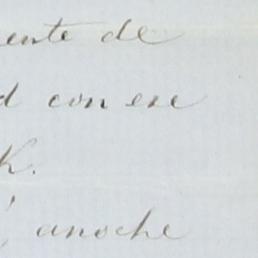 ente de
d con ese
K.
, anoche